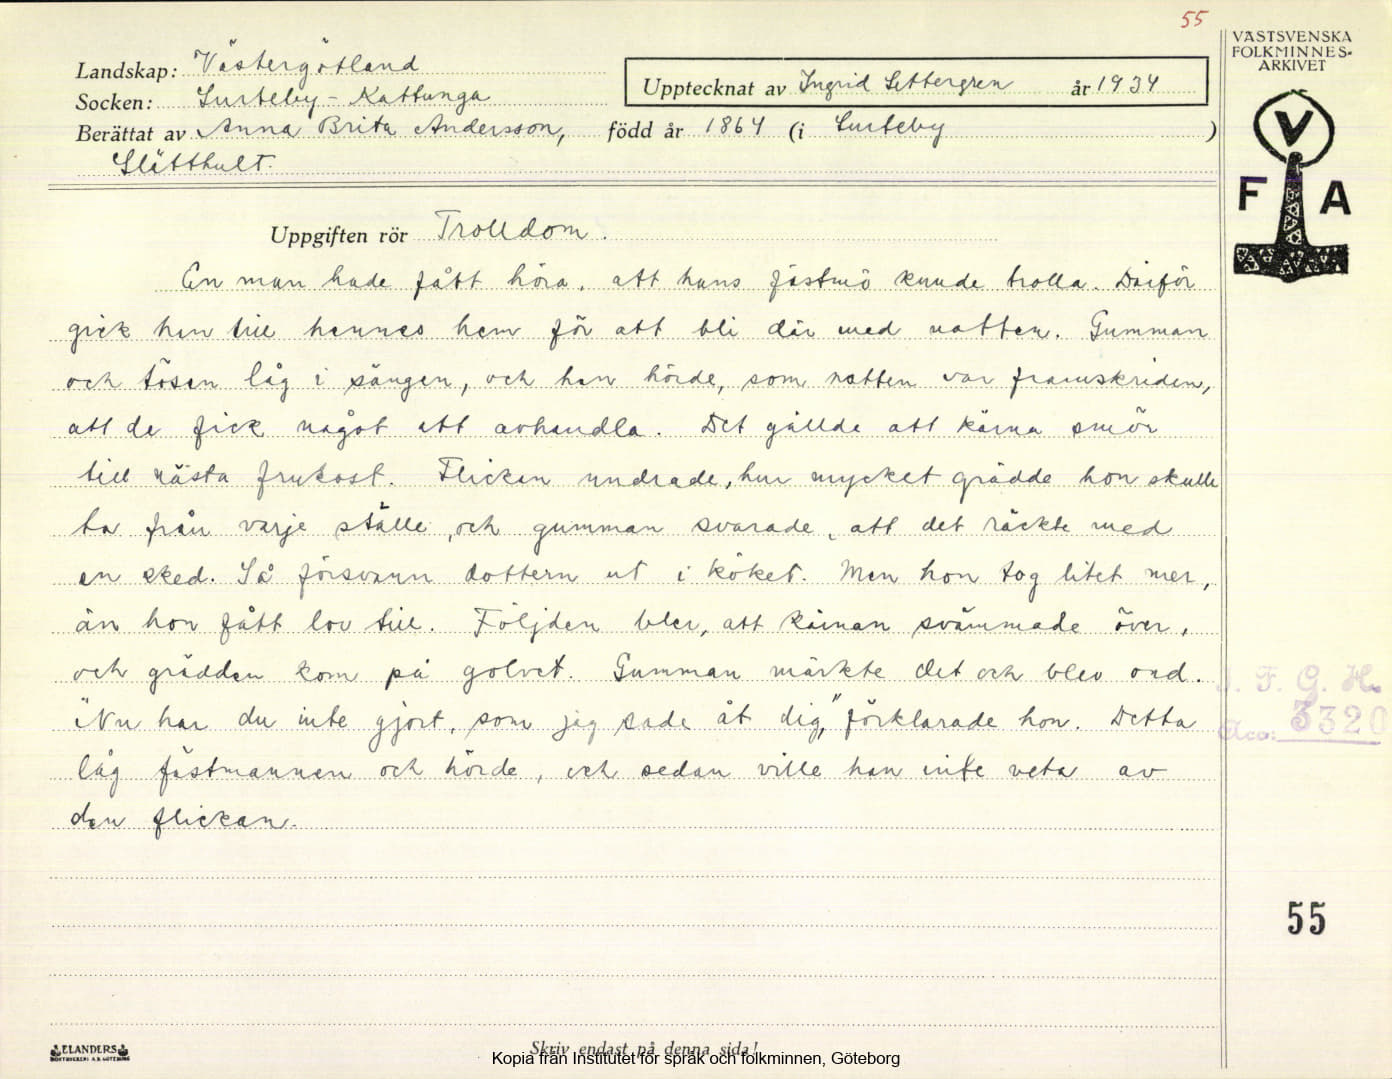 55
VÄSTSVENSKA
FOLKMINNES-
ARKIVET
Landskap: Västergötland
Upptecknat av Ingrid Settergren år 1934
Socken: Surteby-Kattunga
Berättat av Anna Brita Andersson, född år 1864 (i Surteby )
Slätthult.
V
F A
Uppgiften rör Trolldom.
En man hade fått höra, att hans fästmö kunde trolla. Därför
gick han till hennes hem för att bli där med natten. Gumman
och tösen låg i sängen, och han hörde, som natten var framskriden,
att de fick något att avhandla. Det gällde att kärna smör
till nästa frukost. Flickan undrade, hur mycket grädde hon skulle
ta från varje ställe, och gumman svarade, att det räckte med
en sked. Så försvann dottern ut i köket. Men hon tog litet mer,
än hon fått lov till. Följden blev, att kärnan svämmade över,
och grädden kom på golvet. Gumman märkte det och blev ond.
"Nu har du inte gjort, som jag sade åt dig," förklarade hon. Detta
låg fästmannen och hörde, och sedan ville han inte veta av
den flickan.
I. F. G. H.
Acc: 3320
55
ELANDERS
BOKTRYCKERI A.B. GÖTEBORG
Skriv endast på denna sida!
Kopia från Institutet för språk och folkminnen, Göteborg